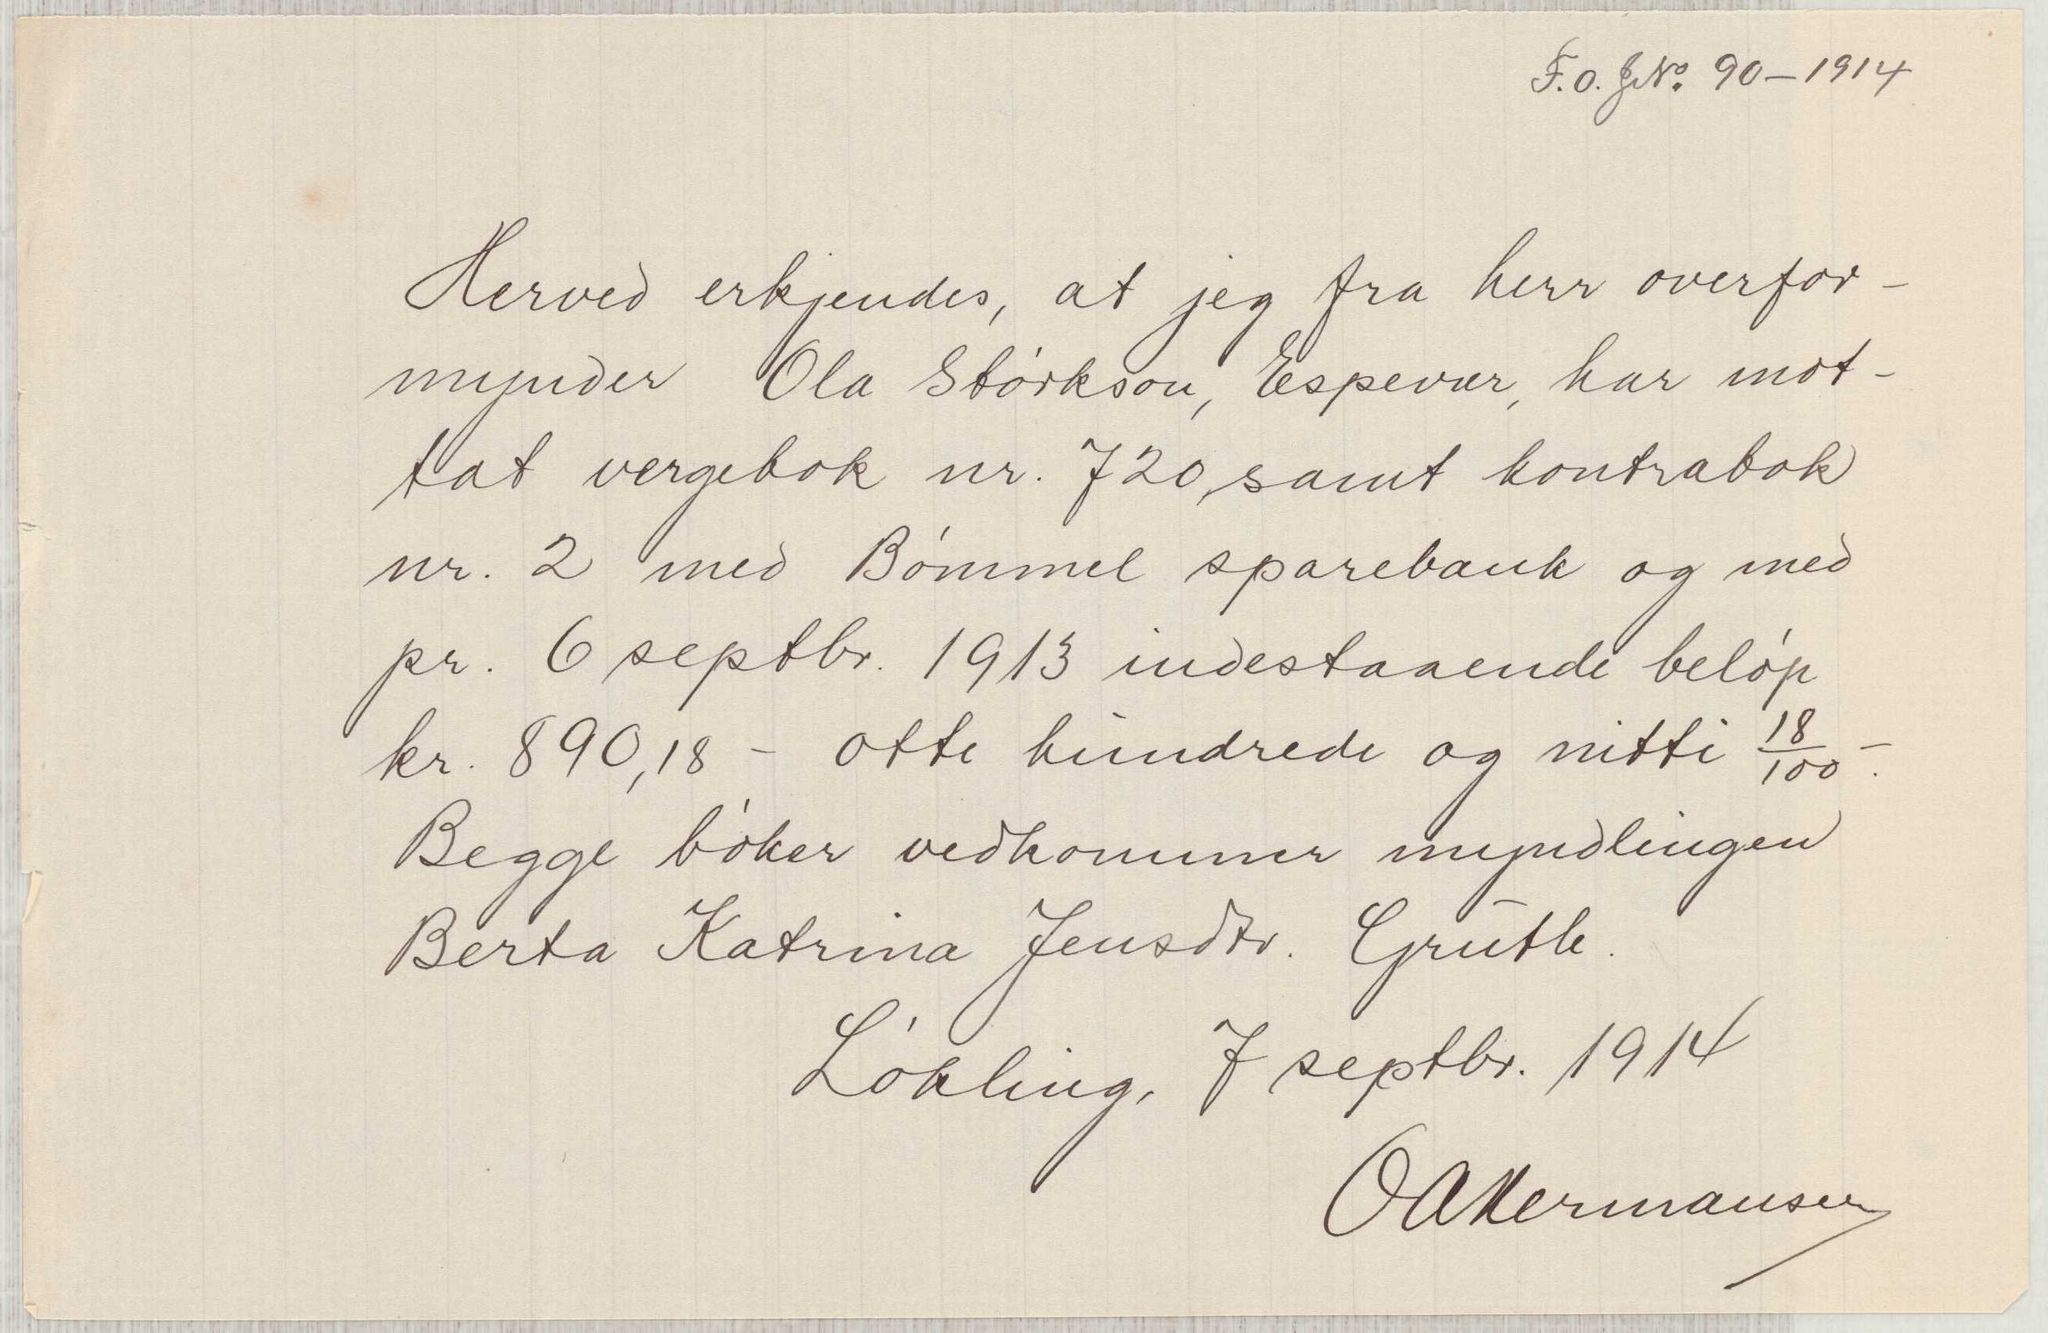 F.O. JNo. 90–1914
Herved erkjendes, at jeg fra herr overfor-
mynder Ola Størkson, Espevær, har mot-
tat vergebok nr. 720, samt kontrabok
nr. 2 med Bømmel sparebank og med
pr. 6 septbr. 1913 indestaaende beløp
kr. 890,18 – otte hundrede og nitti 18/100 –.
Begge bøker vedkommer myndlingen
Berta Katrina Jensdtr. Grutle.
Løkling, 7 septbr. 1914
OAHermansen